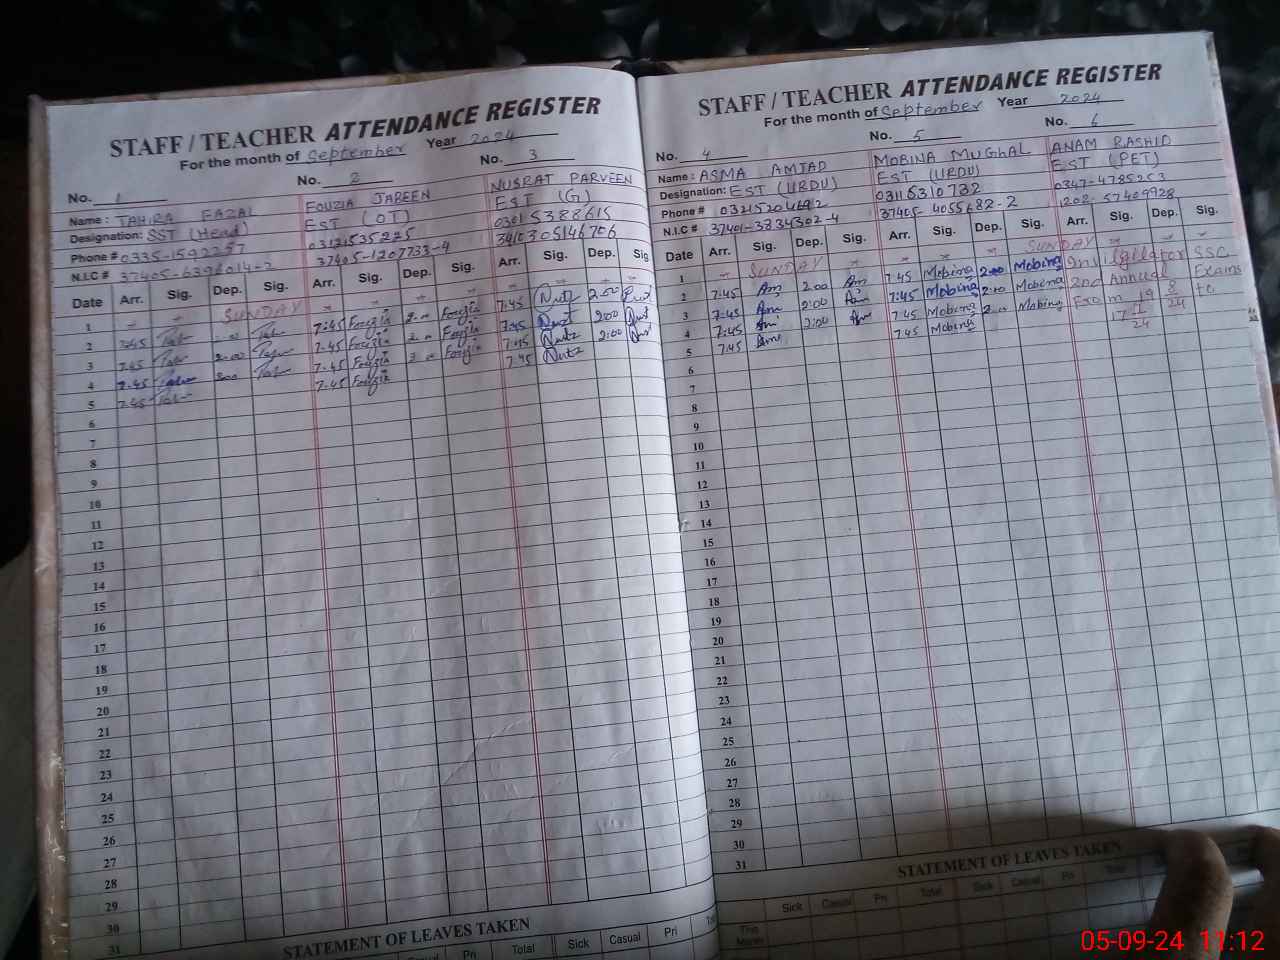 STAFF / TEACHER ATTENDANCE REGISTER
For the month of September Year 2024
No. 1 No. 2 No. 3
Name : TAHIRA FAZAL FOUZIA JABEEN NUSRAT PARVEEN
Designation: SST (Head) EST (OT) EST (G)
Phone # 0335-1592257 03121535225 03015388615
N.I.C # 37405-6396014-2 37405-1207733-4
Date Arr. Sig. Dep. Sig. Arr. Sig. Dep. Sig. Arr. Sig. Dep. Sig.
1 SUNDAY
2 7:45 7:45 Fouzia 2:00 Fouzia 7:45 2:00
3 7:45 2:00 7:45 Fouzia 2:00 Fouzia 7:45 2:00
4 7:45 7:45 Fouzia Fouzia 7:45 2:00
5 7:45 7:45 Fouzia 7:45
6
7
8
9
10
11
12
13
14
15
16
17
18
19
20
21
22
23
24
25
26
27
28
29
30
31
STATEMENT OF LEAVES TAKEN
Casual Pri Total Sick Casual Pri
STAFF / TEACHER ATTENDANCE REGISTER
For the month of September Year 2024
No. 4 No. 5 No. 6
Name : ASMA AMJAD MOBINA MUGHAL ANAM RASHID
Designation: EST (URDU) EST (URDU) EST (PET)
Phone # 03215204692 03116310732 0347-4785253
N.I.C # 37401-3834302-4 37405-4055682-2
Date Arr. Sig. Dep. Sig. Arr. Sig. Dep. Sig. Arr. Sig. Dep. Sig.
1 SUNDAY SUNDAY
2 7:45 Am 2:00 Am 7:45 Mobina 2:00 Mobina Invilgilator SSC
3 7:45 Am 2:00 Am 7:45 Mobina 2:00 Mobina 2nd Annual Exams
4 7:45 Am 2:00 Am 7:45 Mobina 2:00 Mobina From 19 8/24 to
5 7:45 Am 7:45 Mobina
6
7
8
9
10
11
12
13
14
15
16
17
18
19
20
21
22
23
24
25
26
27
28
29
30
31
STATEMENT OF LEAVES TAKEN
Sick Casual Pri Total Sick Casual Pri Total
This Month
05-09-24 11:12